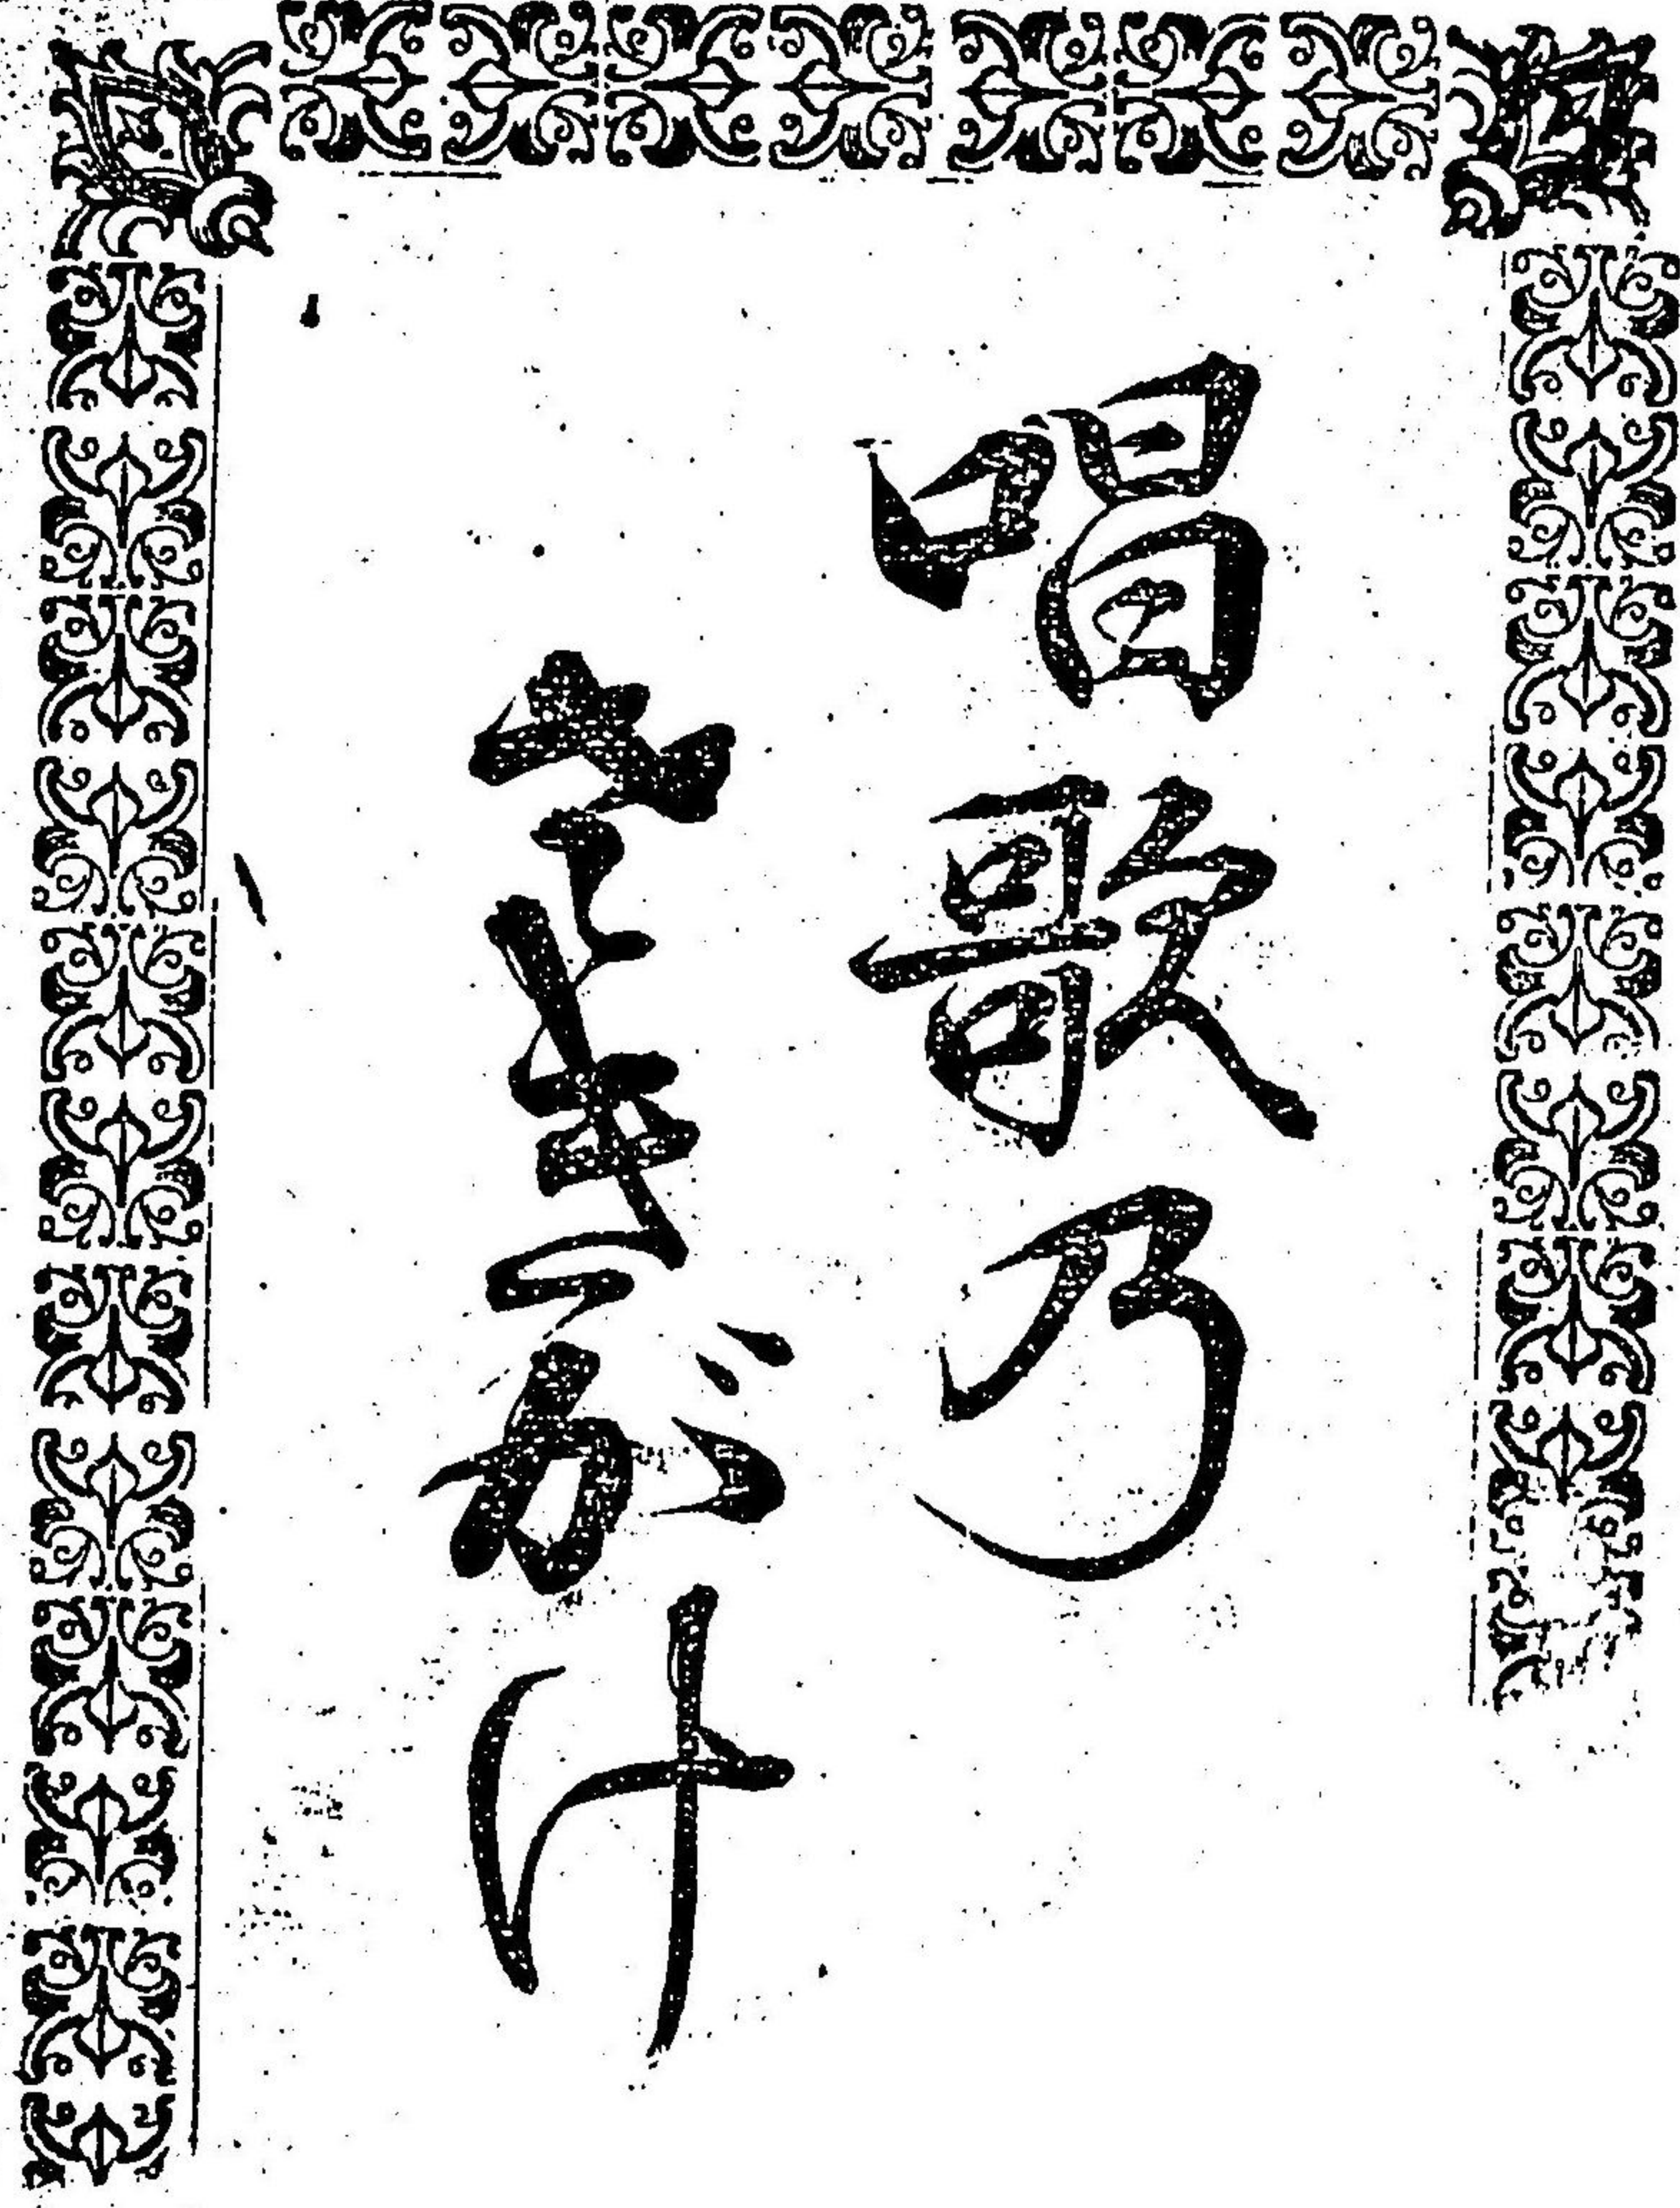 唱歌乃
さきがけ